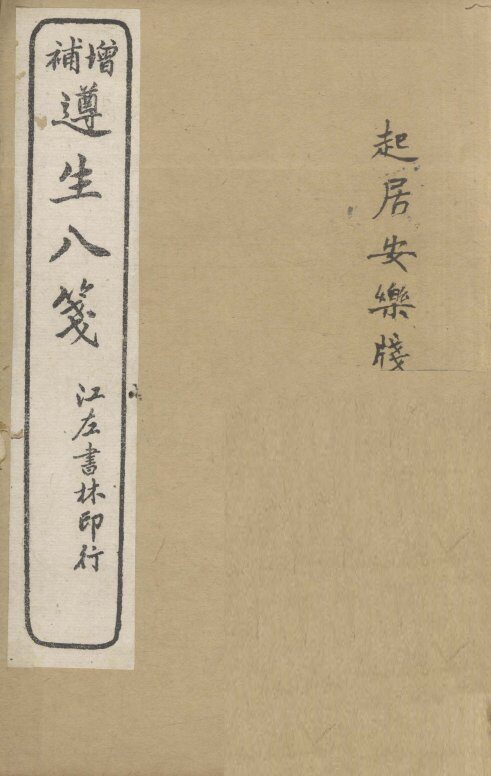 起居安樂牋
增補
遵生八箋
江左書林印行